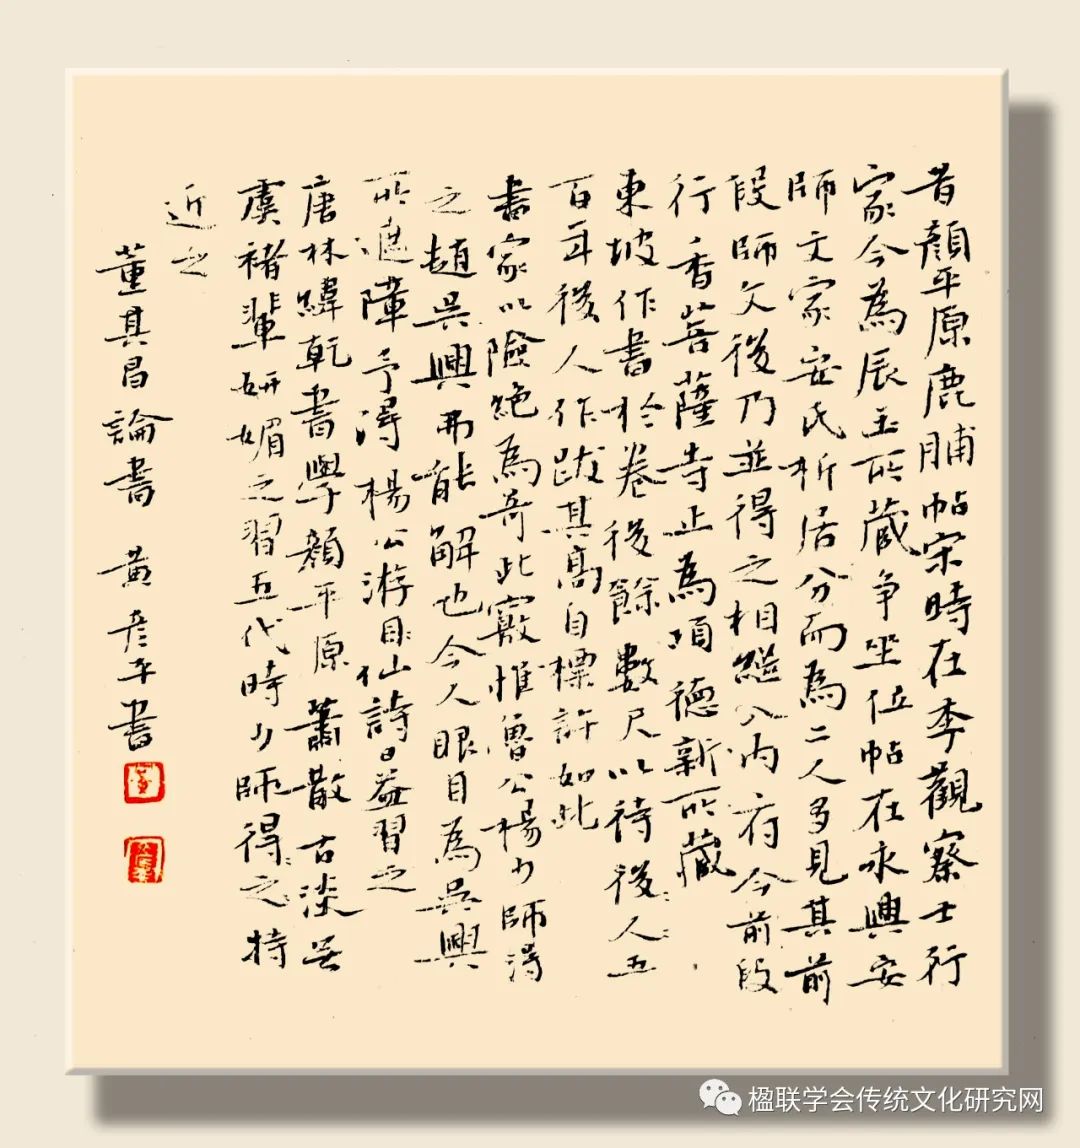 昔顏平原鹿脯帖宋時在李觀察士行
家今為辰玉所藏爭坐位帖在永興安
師文家安氏析居分而為二人多見其前
段師文後乃並得之相繼入內府今前段
行香菩薩寺止為項德新所藏
東坡作書於卷後餘數尺以待後人五
百年後人作跋其高自標許如此
書家以險絕為奇此竅惟魯公楊少師得
之趙吳興弗能解也今人眼目為吳興
所遮障予得楊公游目仙詩日益習之
唐林緯乾書學顏平原蕭散古淡無
虞褚輩妍媚之習五代時少師得之特
近之
董其昌論書 黃彥平書
楹联学会传统文化研究网